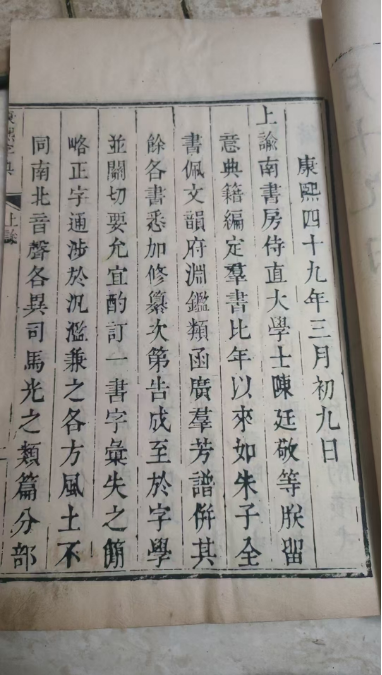 康熙四十九年三月初九日
上諭南書房侍直大學士陳廷敬等朕留
意典籍編定羣書比年以來如朱子全
書佩文韻府淵鑑類函廣羣芳譜併其
餘各書悉加修纂次第告成至於字學
並關切要允宜酌訂一書字彙失之簡
略正字通涉於汎濫兼之各方風土不
同南北音聲各異司馬光之類篇分部
康熙字典
上諭